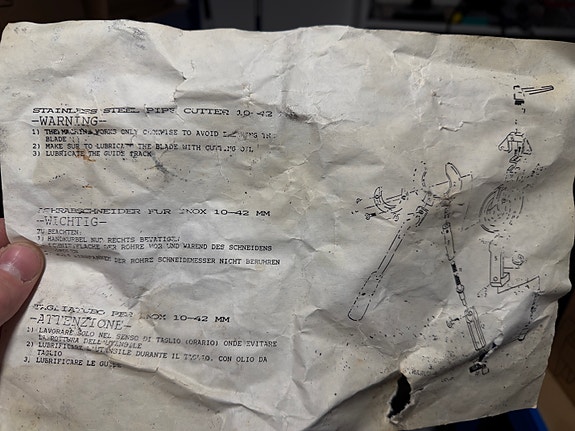 STAINLESS STEEL PIPE CUTTER 10-42
-WARNING-
1) THE MACHINE WORKS ONLY CLOCKWISE TO AVOID BREAKING THE
BLADE
2) MAKE SURE TO LUBRICATE THE BLADE WITH CUTTING OIL
3) LUBRICATE THE GUIDE TRACK
FUR INOX 10-42 MM
-WICHTIG-
ZU BEACHTEN:
1) HANDKURBEL NUR RECHTS BETATIGEN
DER ROHRE VOR UND WAREND DES SCHNEIDENS
DER ROHRE SCHNEIDEMESSER NICHT BERUHREN
TAGLIATUBO PER INOX 10-42 MM
-ATTENZIONE-
1) LAVORARE SOLO NEL SENSO DI TAGLIO (ORARIO) ONDE EVITARE
LA ROTTURA DELL'UTENSILE
2) LUBRIFICARE L'UTENSILE DURANTE IL TAGLIO, CON OLIO DA
TAGLIO
3. LUBRIFICARE LE GUIDE